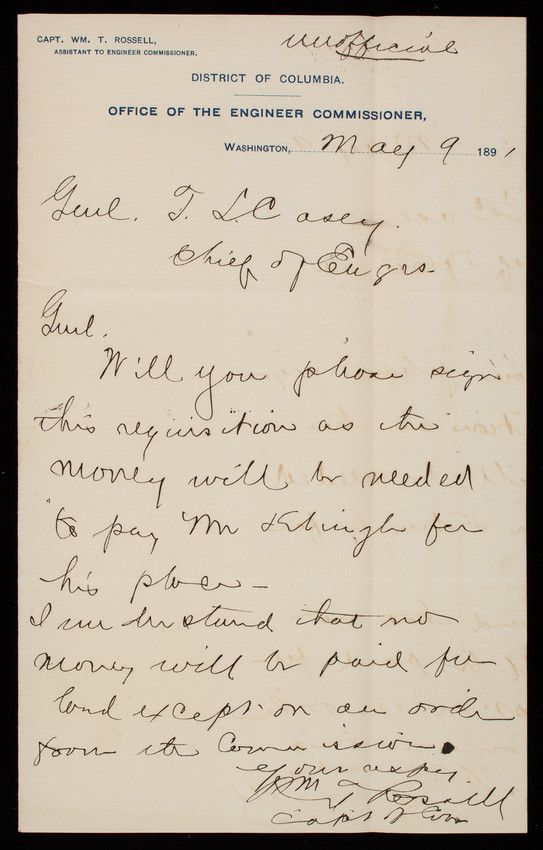 CAPT. WM. T. ROSSELL,
ASSISTANT TO ENGINEER COMMISSIONER.
unofficial
DISTRICT OF COLUMBIA.
OFFICE OF THE ENGINEER COMMISSIONER,
WASHINGTON, May 9 1891
Genl. T. L. Casey.
Chief of Engrs.
Genl.
Will you please sign
this requisition as the
money will be needed
to pay Mr for
his place -
I understand that no
money will be paid for
land except on an order
from the Commission.
Your respy
Wm T Rossell
Capt of Eng